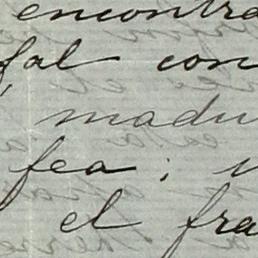 encontra
fal con
madu
fea; u
el fra